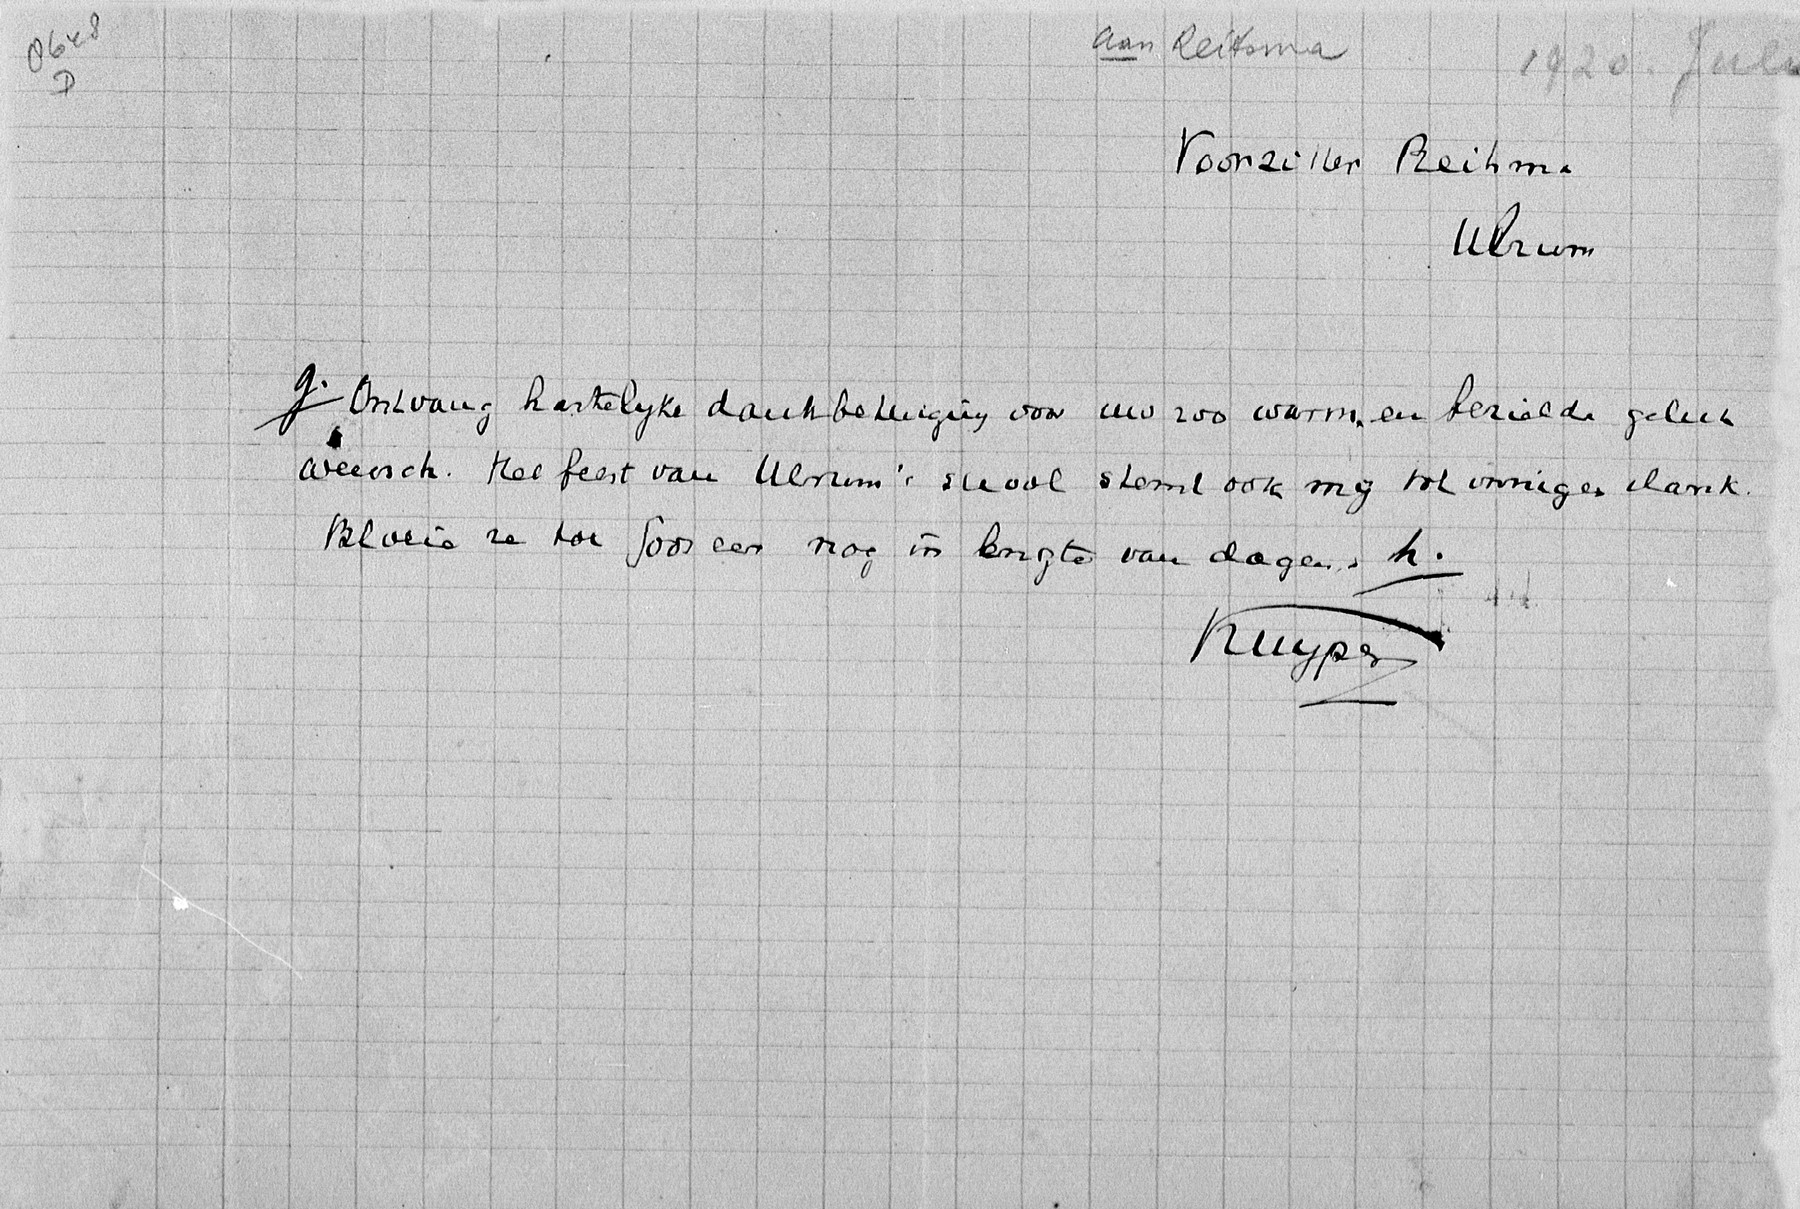 8648
D
aan Reitsma
1920. Juli
Voorzitter Reitsma
Ulrum
Ontvang hartelyke dankbetuiging voor uw zoo warm en bezielde geluk
wensch. Het feest van Ulrum's school stemt ook my tot innigen dank.
Bloeie ze tot Gods eer nog in lengte van dagen.
Kuyper